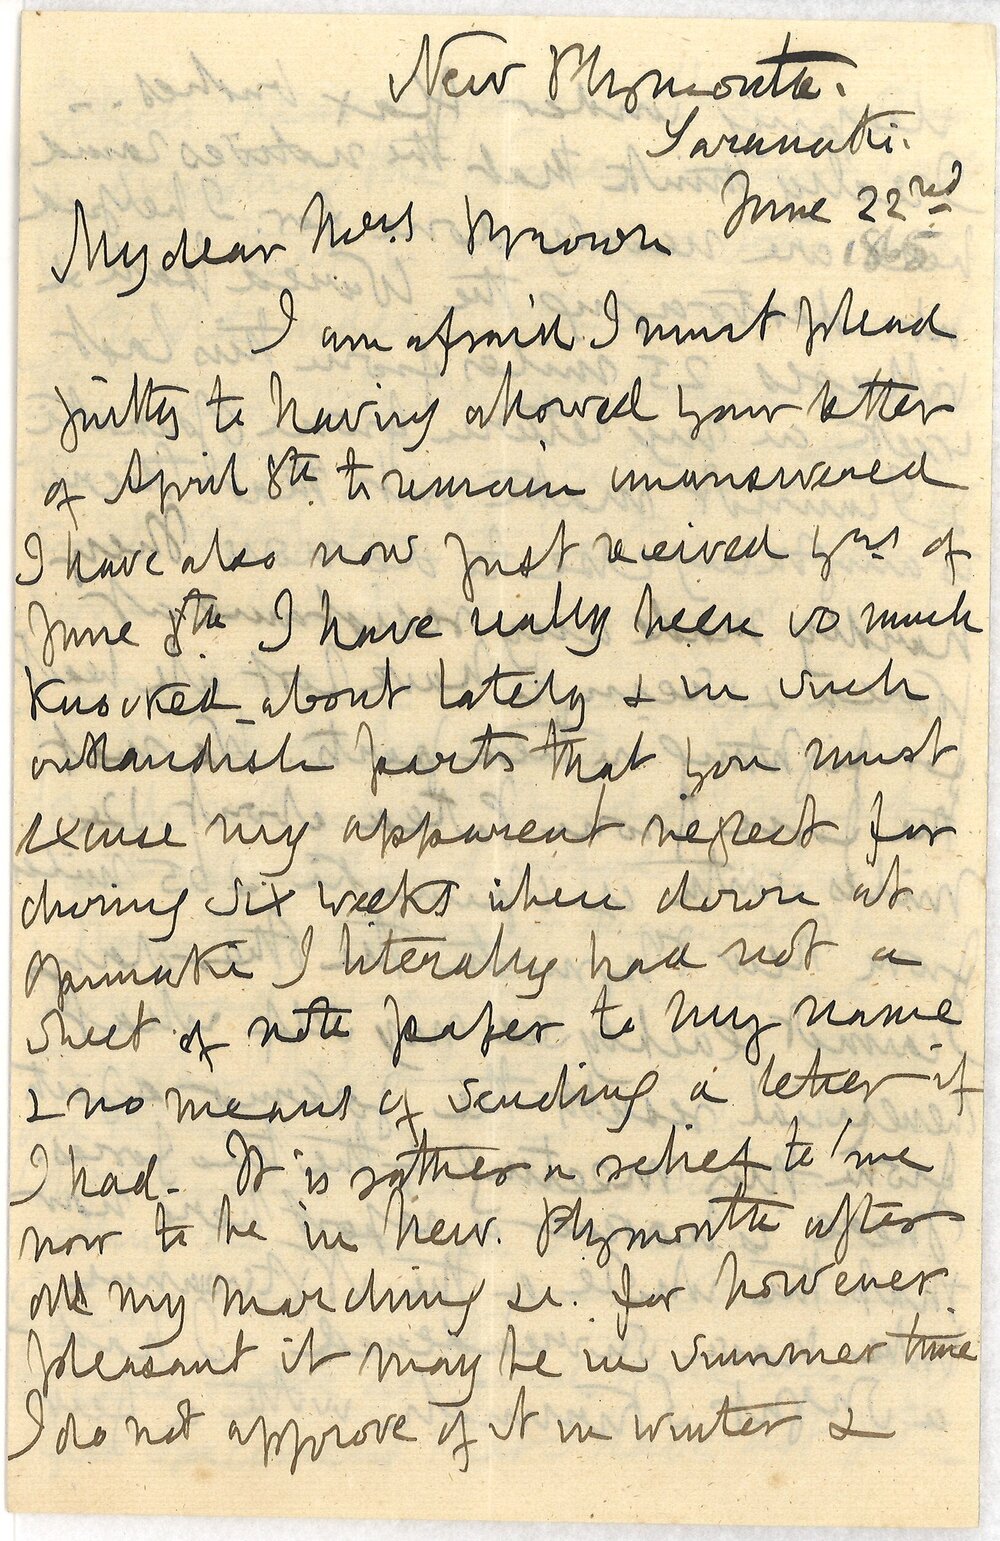 New Plymouth.
Taranaki.
June 22nd
1865
My dear Mrs Brown
I am afraid I must plead
guilty to having allowed your letter
of April 8th to remain unanswered
I have also now just received yrs of
June 8th I have really been so much
knocked about lately & in such
outlandish parts that you must
excuse my apparent neglect for
during six weeks when down at
Opunake I literally had not a
sheet of note paper to my name
& no means of sending a letter if
I had. It is rather a relief to me
now to be in New. Plymouth after
all my marching &c. for however
pleasant it may be in summer time
I do not approve of it in winter &